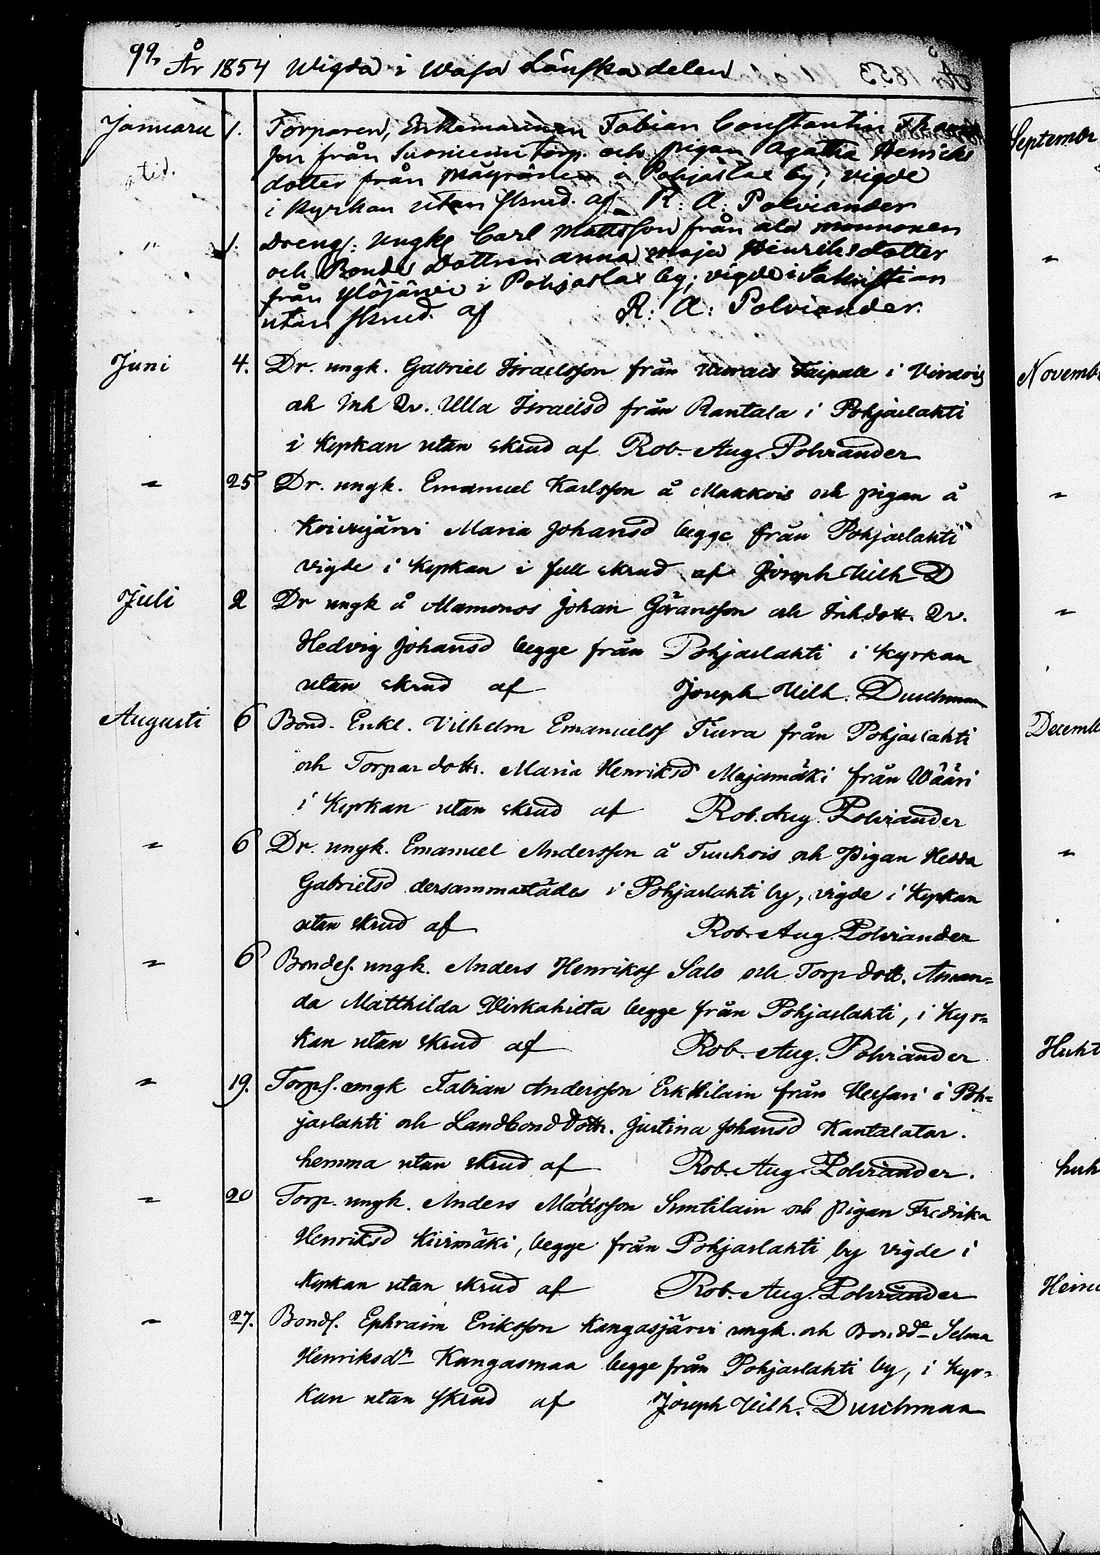 99. År 1854 Wigda i Wasa Länska delen
Januari 1. Torparen, Enkemannen Tobian Constantin
son från Suoniemi torp. och pigan Agatha Henriks
dotter från å Pohjaslax by; vigde
i kyrkan utan skrud. af R. A. Polviander
" 1. Dreng. Ungk. Carl Mattsson från ala monnonen
och Bonde Dottren anna Maja Henriksdotter
från Ylöjärvi i Pohjaslax by; vigde i Sakristian
utan skrud. af R. A. Polviander.
Juni 4. Dr. ungk. Gabriel Israelsson från Taipale i Virdois
och Inh Dr. Ulla Israelsd från Rantala i Pohjaslahti
i Kyrkan utan skrud af Rob. Aug. Polviander
" 25 Dr. ungk. Emanuel Karlsson å Makkois och pigan å
Koivujärvi Maria Johansd begge från Pohjaslahti
vigde i Kyrkan i full skrud af Joseph Wilh D
Juli 2 Dr ungk å Mamonos Johan Göransson och Inh. dott. Dr.
Hedvig Johansd begge från Pohjaslahti i Kyrkan
utan skrud af Joseph Wilh. Duschman
Augusti 6 Bond. Enkl. Vilhelm Emanuelss Tiura från Pohjaslahti
och Torpar dottr. Maria Henriksd Majamäki från Wääri
i Kyrkan utan skrud af Rob. Aug. Polviander
" 6 Dr. ungk. Emanuel Andersson å Turhois och Pigan Hedda
Gabrielsd dersammastädes i Pohjaslahti by, vigde i Kyrkan
utan skrud af Rob. Aug. Polviander
" 6 Bondes. ungk. Anders Henrikss Salo och Torp dott. Aman=
da Matthilda Wirkahilta begge från Pohjaslahti, i Kyr=
kan utan skrud af Rob. Aug. Polviander
" 19. Torps. ungk Fabian Andersson Erkkilain från Vessari i Poh=
jaslahti och Landbond dottr. Justina Johansd Kantalatar.
hemma utan skrud af Rob. Aug. Polviander.
" 20 Torp. ungk. Anders Matsson Suntilain och Pigan Fredrika
Henriksd Kivimäki, begge från Pohjaslahti by vigde i
Kyrkan utan skrud af Rob. Aug. Polviander
" 27. Bonds. Ephraim Eriksson Kangasjärvi ungk. och Bondd. Selma
Henriksdr Kangasmaa begge från Pohjaslahti by, i Kyr=
kan utan skrud af Joseph Wilh. Duschman
September
"
Novemb
"
"
Decemb
"
Huht
huh
Hein